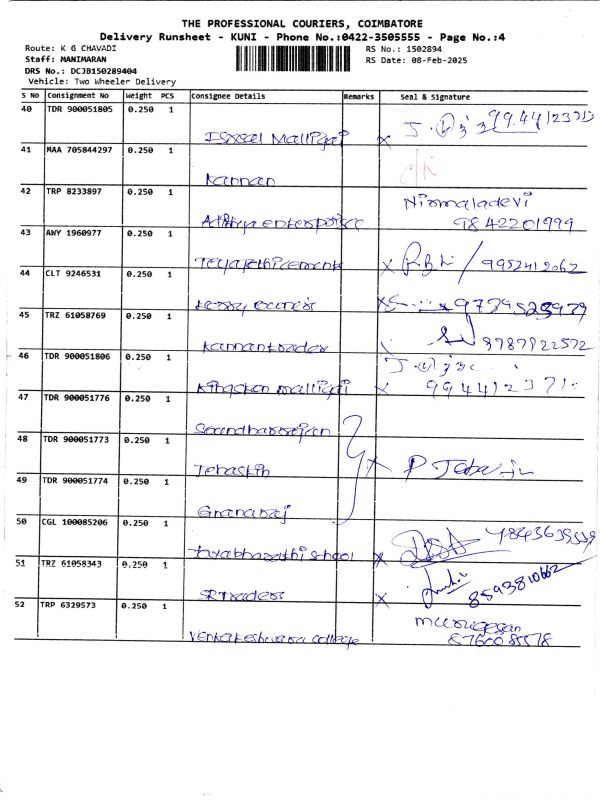 THE PROFESSIONAL COURIERS, COIMBATORE
Delivery Runsheet - KUNI - Phone No.:0422-3505555 - Page No.:4
Route: K G CHAVADI
RS No.: 1502894
Staff: MANIMARAN
RS Date: 08-Feb-2025
DRS No.: DCJB150289404
Vehicle: Two Wheeler Delivery
S No Consignment No Weight PCS Consignee Details Remarks Seal & Signature
40 TDR 900051805 0.250 1
Malligai
41 MAA 705844297 0.250 1
Kannan
42 TRP 8233897 0.250 1
Nirmaladevi
Adithya enterprisec 9842201999
43 AWY 1960977 0.250 1
9952412062
44 CLT 9246531 0.250 1
9739529979
45 TRZ 61058769 0.250 1
Kannan trader 8787922572
46 TDR 900051806 0.250 1
malligai
47 TDR 900051776 0.250 1
Soundharrajan
48 TDR 900051773 0.250 1
Jebastin
49 TDR 900051774 0.250 1
Gnanaraj
50 CGL 100085206 0.250 1
school
51 TRZ 61058343 0.250 1
SR Traders 8593810662
52 TRP 6329573 0.250 1
murugesan
Venkateshwara college